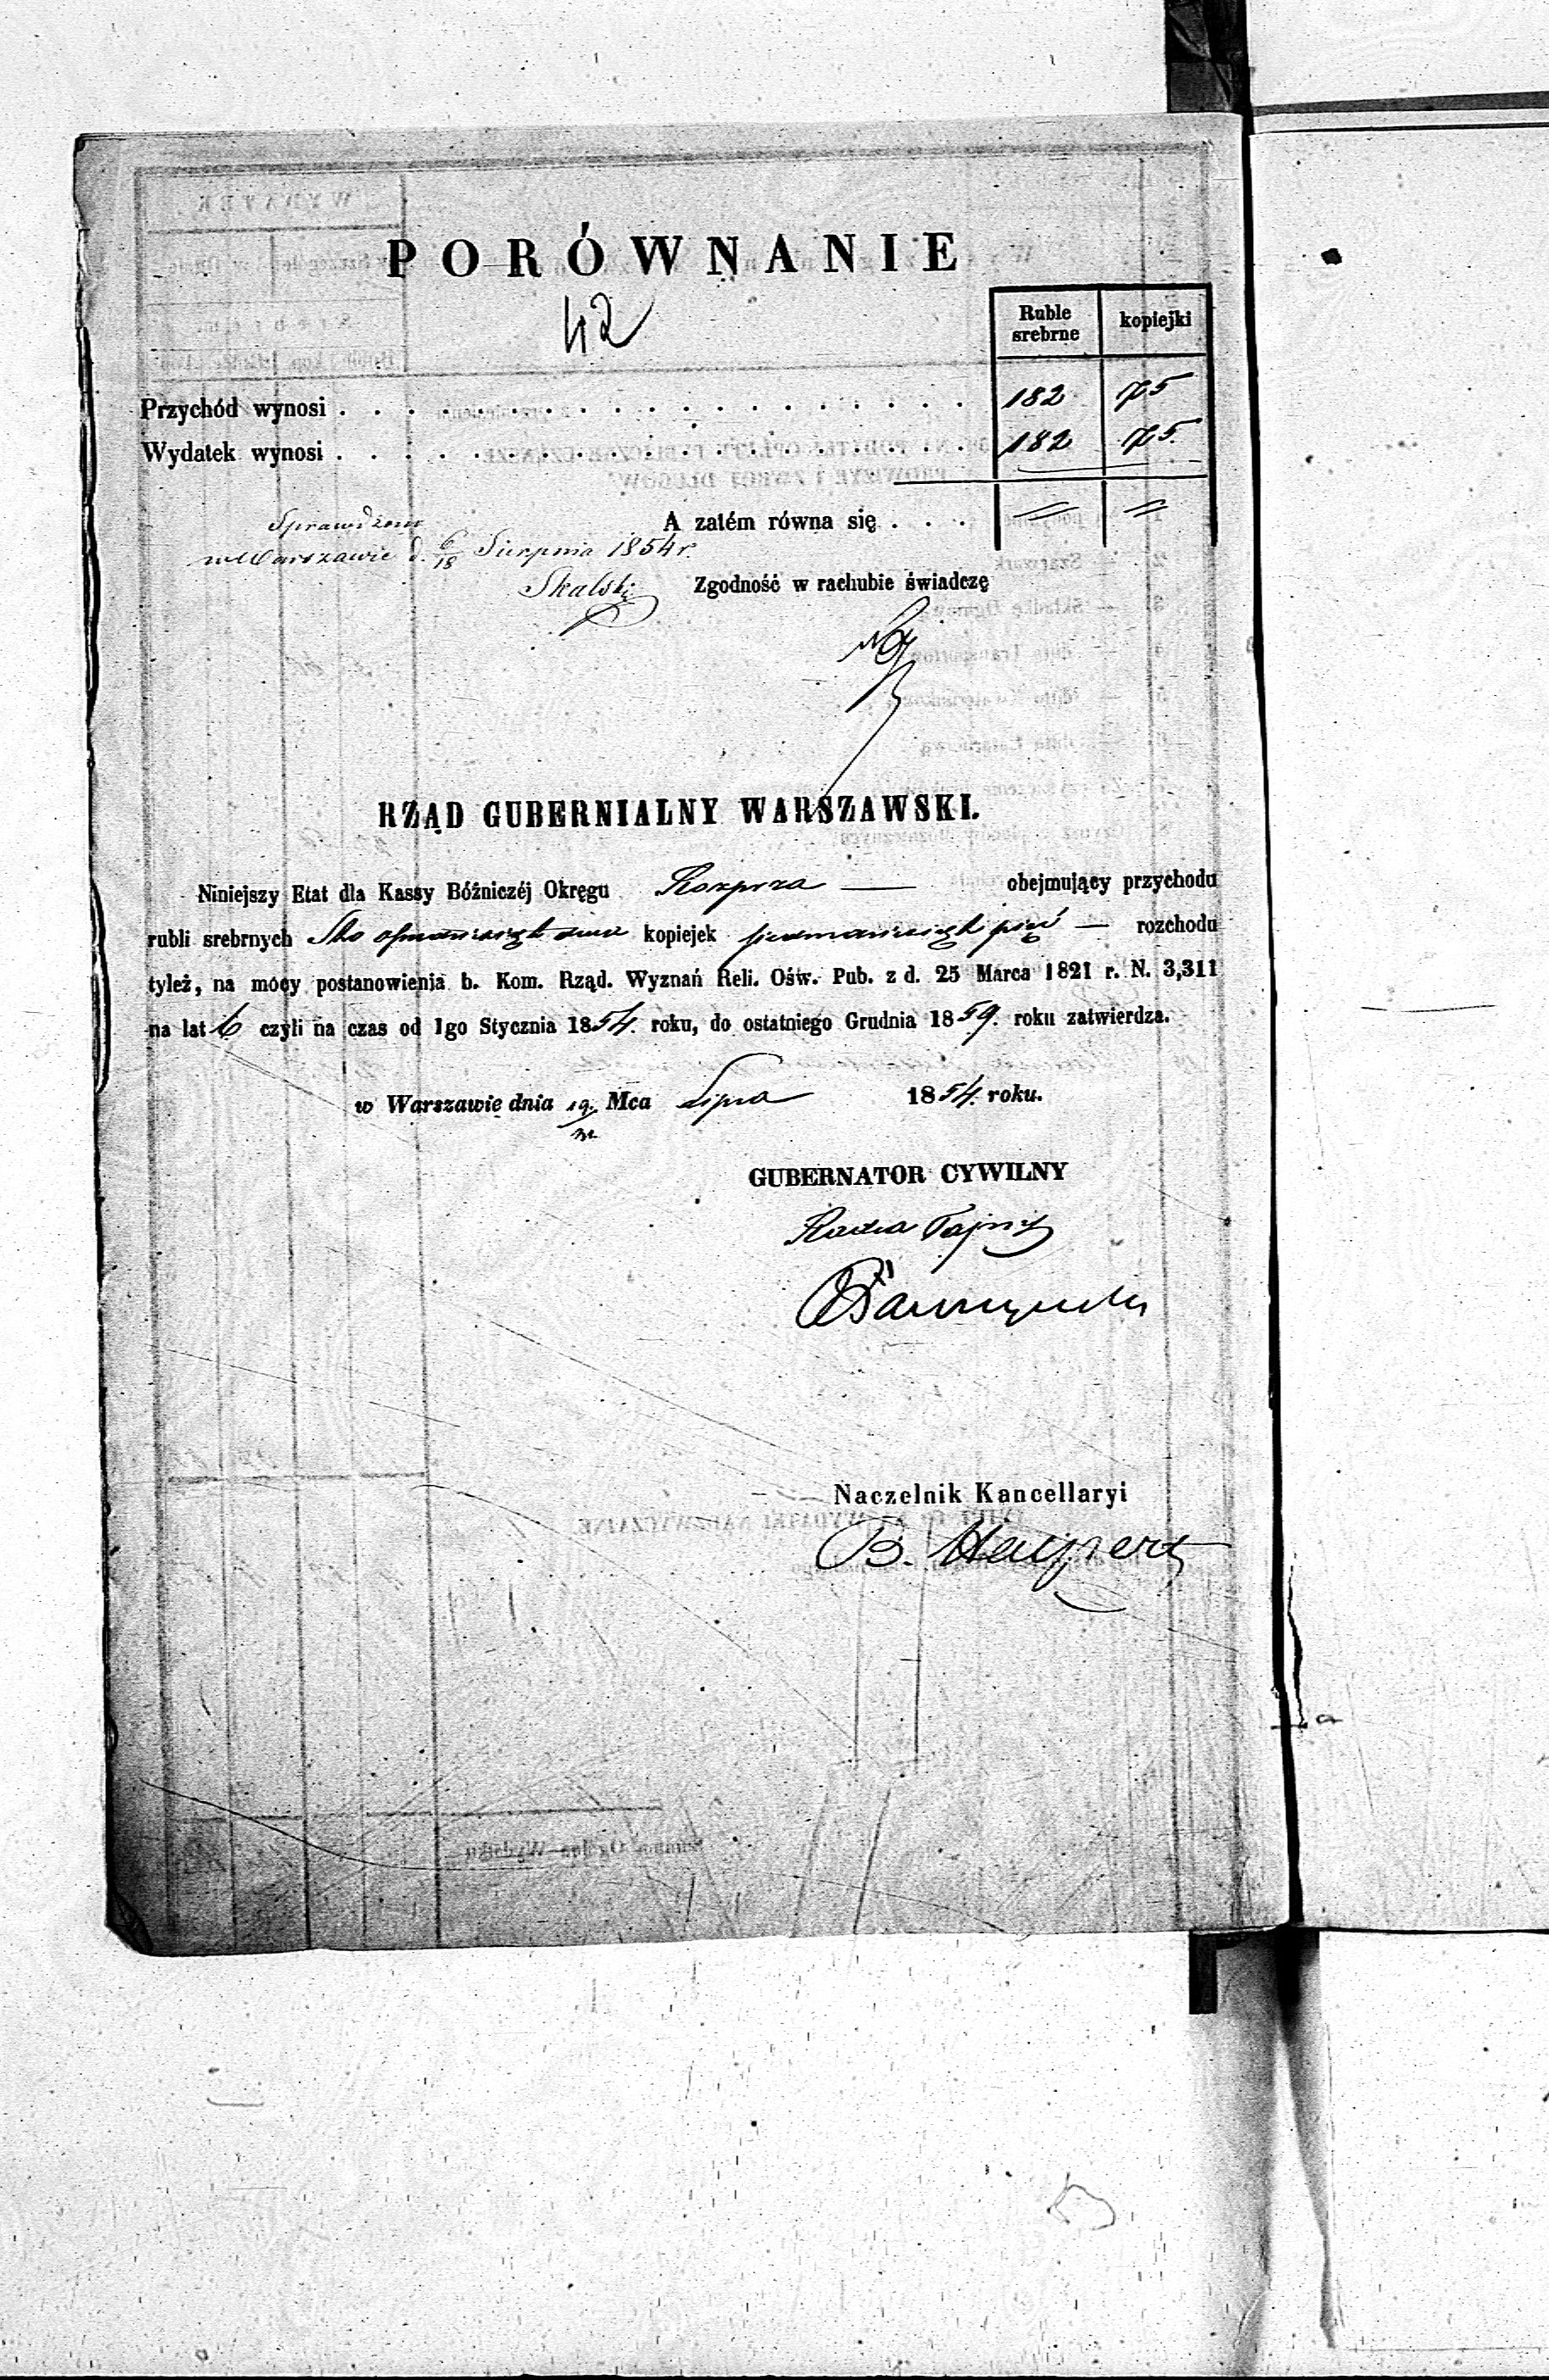 PORÓWNANIE
42
Ruble srebrne kopiejki
Przychód wynosi . . . . . . . . . . . . . . . . . . . 182 75
Wydatek wynosi . . . . . . . . . . . . . . . . . . . 182 75.
Sprawdzono A zatém równa się . . .
w Warszawie d. 6/18 Sierpnia 1854 r.
Skalski Zgodność w rachubie świadczę
RZĄD GUBERNIALNY WARSZAWSKI.
Niniejszy Etat dla Kassy Bóżniczéj Okręgu Rozprza — obejmujący przychodu
rubli srebrnych Sto ośmdziesiąt dwa kopiejek siedmdziesiąt pięć — rozchodu
tyleż, na mocy postanowienia b. Kom. Rząd. Wyznań Reli. Ośw. Pub. z d. 25 Marca 1821 r. N. 3,311
na lat 6 czyli na czas od 1go Stycznia 1854. roku, do ostatniego Grudnia 1859. roku zatwierdza.
w Warszawie dnia 19/31 Mca Lipca 1854. roku.
GUBERNATOR CYWILNY
Radca Tajny
Naczelnik Kancellaryi
B. Halpert